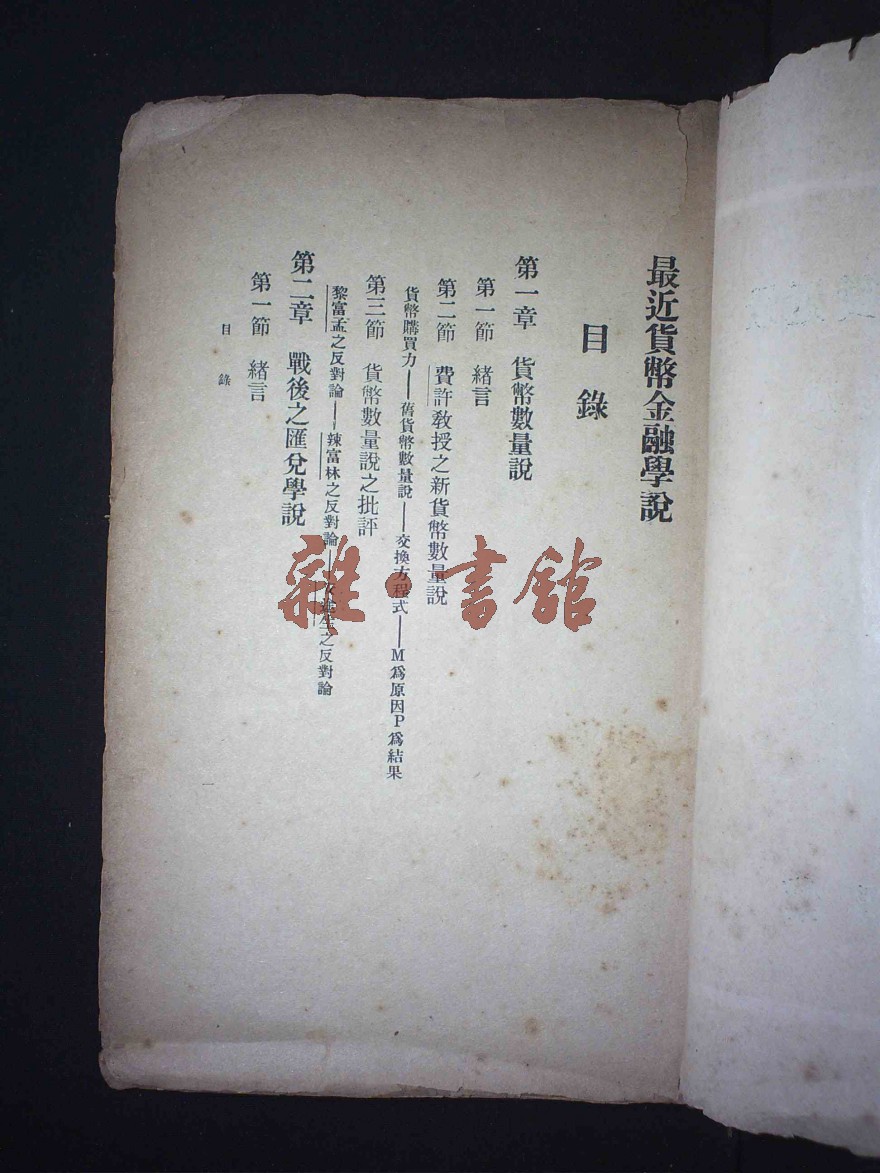 最近貨幣金融學說
目錄
第一章　貨幣數量說
第一節　緒言
第二節　費許敎授之新貨幣數量說
貨幣購買力——舊貨幣數量說——交換方程式——M爲原因P爲結果
第三節　貨幣數量說之批評
黎富孟之反對論——辣富林之反對論——之反對論
第二章　戰後之匯兌學說
第一節　緒言
目錄
一
雜·書館